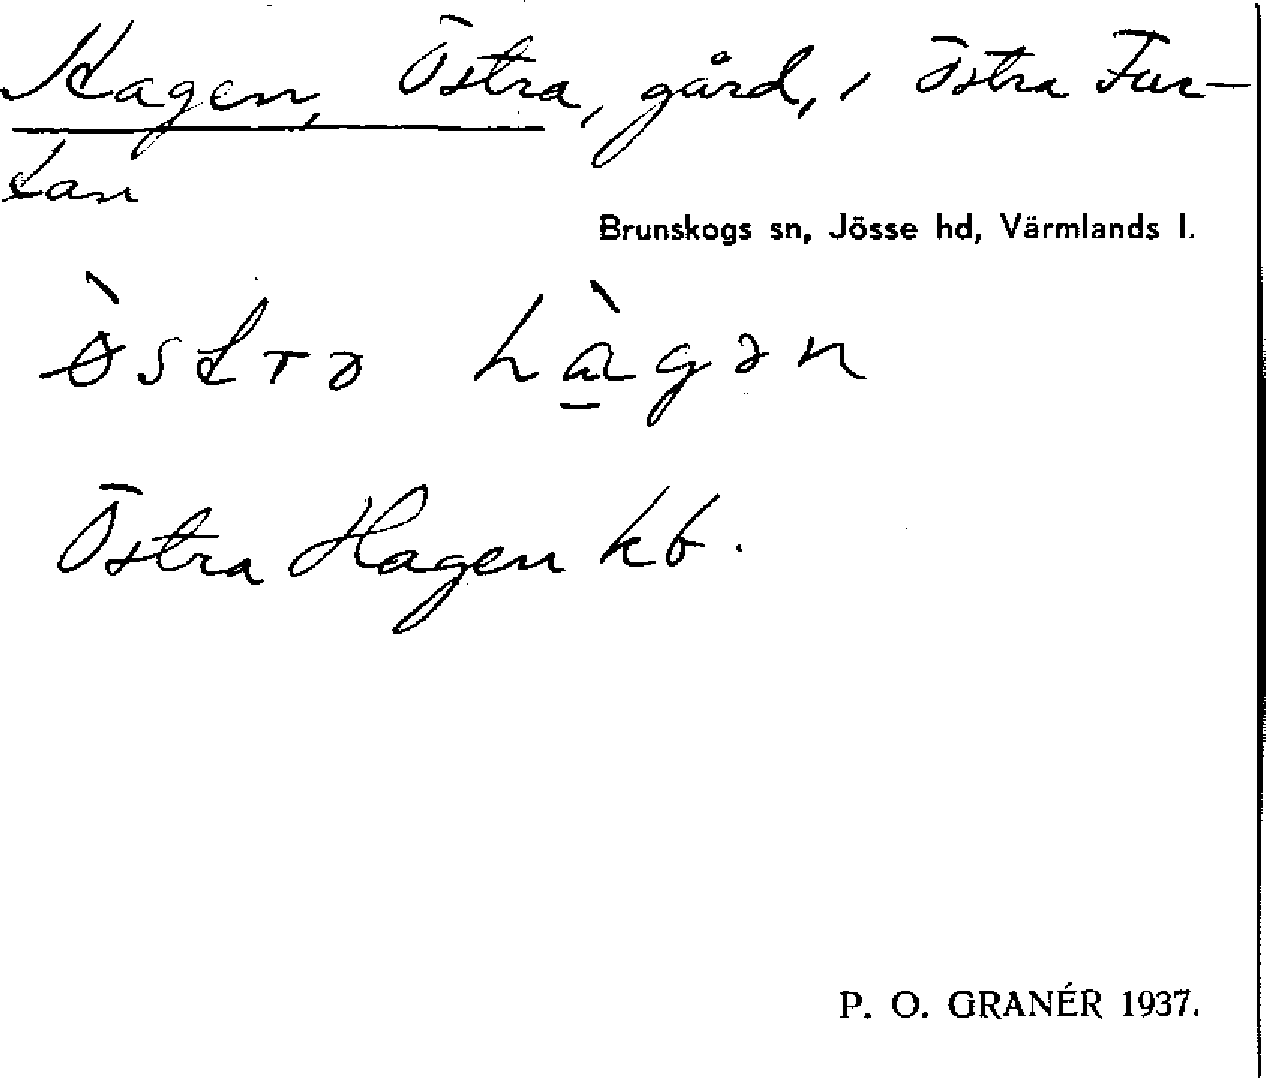 Hagen, Östra, gård, i Östra Fur-
tan
Brunskogs sn, Jösse hd, Värmlands l.
ø̀strə hà̱gən
Östra Hagen kb.
P. O. GRANÉR 1937.